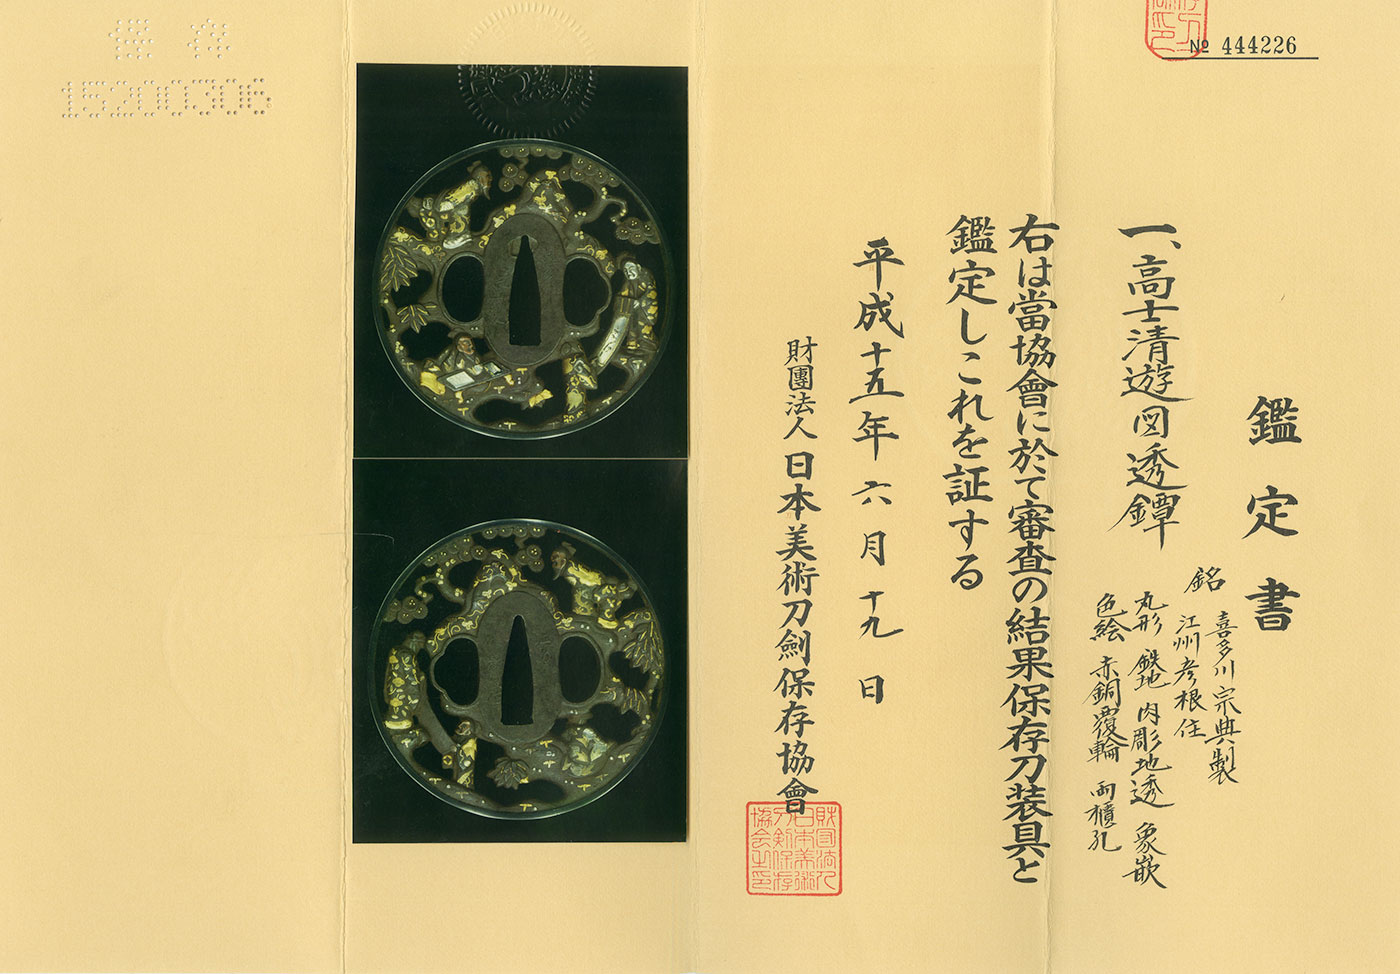 № 444226
鑑定書
一、高士清遊図透鐔
銘 喜多川宗典製
江州彦根住
丸形 鉄地 肉彫地透 象嵌
色絵 赤銅覆輪 両櫃孔
右は當協會に於て審査の結果保存刀装具と
鑑定しこれを証する
平成十五年六月十九日
財團法人日本美術刀劍保存協會
財団法人
日本美術
刀剣保存
協会之印
保存
15200306